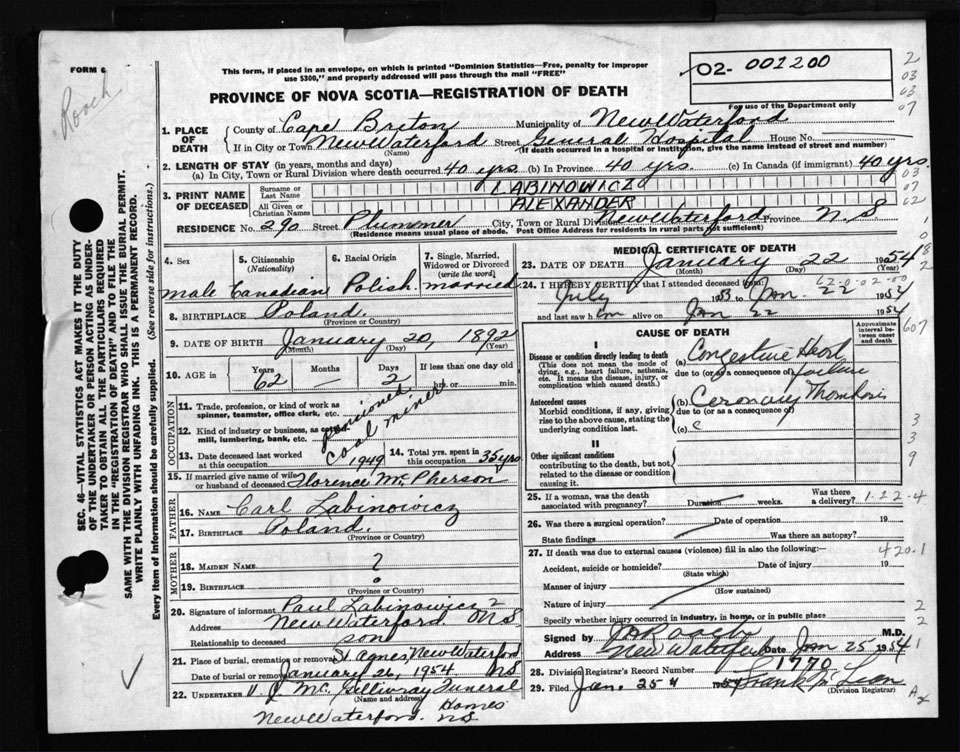 FORM 6
Roach
This form, if placed in an envelope, on which is printed "Dominion Statistics—Free, penalty for improper
use $300," and properly addressed will pass through the mail "FREE"
02- 001200
PROVINCE OF NOVA SCOTIA—REGISTRATION OF DEATH
For use of the Department only
1. PLACE OF DEATH
County of Cape Breton Municipality of New Waterford
If in City or Town New Waterford Street General Hospital House No.
(Name) (If death occurred in a hospital or institution, give the name instead of street and number)
2. LENGTH OF STAY (in years, months and days)
(a) In City, Town or Rural Division where death occurred 40 yrs. (b) In Province 40 yrs. (c) In Canada (if immigrant) 40 yrs.
3. PRINT NAME OF DECEASED
Surname or Last Name LABINOWICZ
All Given or Christian Names ALEXANDER
RESIDENCE No. 290 Street Plummer City, Town or Rural Div. New Waterford Province N.S
(Residence means usual place of abode. Post Office Address for residents in rural parts not sufficient)
4. Sex
male
5. Citizenship (Nationality)
Canadian
6. Racial Origin
Polish
7. Single, Married, Widowed or Divorced (write the word)
married
8. BIRTHPLACE Poland
(Province or Country)
9. DATE OF BIRTH January 20, 1892
(Month) (Day) (Year)
10. AGE in Years 62 Months — Days 2 If less than one day old hr. or min.
OCCUPATION
11. Trade, profession, or kind of work as spinner, teamster, office clerk, etc.
12. Kind of industry or business, as cotton mill, lumbering, bank, etc.
pensioned coal miner
13. Date deceased last worked at this occupation 1949
14. Total yrs. spent in this occupation 35 yrs
15. If married give name of wife or husband of deceased Florence McPherson
FATHER
16. NAME Carl Labinowicz
17. BIRTHPLACE Poland.
(Province or Country)
MOTHER
18. MAIDEN NAME ?
19. BIRTHPLACE
(Province or Country)
20. Signature of informant Paul Labinowicz
Address New Waterford NS
Relationship to deceased son
21. Place of burial, cremation or removal St Agnes, New Waterford
Date of burial or removal January 26, 1954 NS
22. UNDERTAKER V. J. McGillivray Funeral Homes
(Name and address)
New Waterford. NS
MEDICAL CERTIFICATE OF DEATH
23. DATE OF DEATH January 22 1954
(Month) (Day) (Year)
24. I HEREBY CERTIFY that I attended deceased from:
July 1953 to Jan. 22 1954
and last saw him alive on Jan 22 1954
CAUSE OF DEATH
Approximate interval between onset and death
I
Disease or condition directly leading to death
(This does not mean the mode of dying, e.g., heart failure, asthenia, etc. It means the disease, injury, or complication which caused death.)
(a) Congestive Heart failure
due to (or as a consequence of)
Antecedent causes
Morbid conditions, if any, giving rise to the above cause, stating the underlying condition last.
(b) Coronary Thrombosis
due to (or as a consequence of)
(c)
II
Other significant conditions
contributing to the death, but not related to the disease or condition causing it.
25. If a woman, was the death associated with pregnancy? Duration weeks. Was there a delivery?
1-22-4
26. Was there a surgical operation? Date of operation 19
State findings Was there an autopsy?
27. If death was due to external causes (violence) fill in also the following:—
420.1
Accident, suicide or homicide? Date of injury 19
(State which)
Manner of injury
(How sustained)
Nature of injury
Specify whether injury occurred in industry, in home, or in public place
Signed by Roach M.D.
Address New Waterford Date Jan 25 1954
28. Division Registrar's Record Number 1770
29. Filed Jan. 25 Frank McLean
(Division Registrar)
SEC. 46—VITAL STATISTICS ACT MAKES IT THE DUTY
OF THE UNDERTAKER OR PERSON ACTING AS UNDER-
TAKER TO OBTAIN ALL THE PARTICULARS REQUIRED
IN THE "REGISTRATION OF DEATH" AND TO FILE THE
SAME WITH THE DIVISION REGISTRAR WHO SHALL ISSUE THE BURIAL PERMIT.
WRITE PLAINLY WITH UNFADING INK. THIS IS A PERMANENT RECORD.
Every item of Information should be carefully supplied. (See reverse side for instructions.)